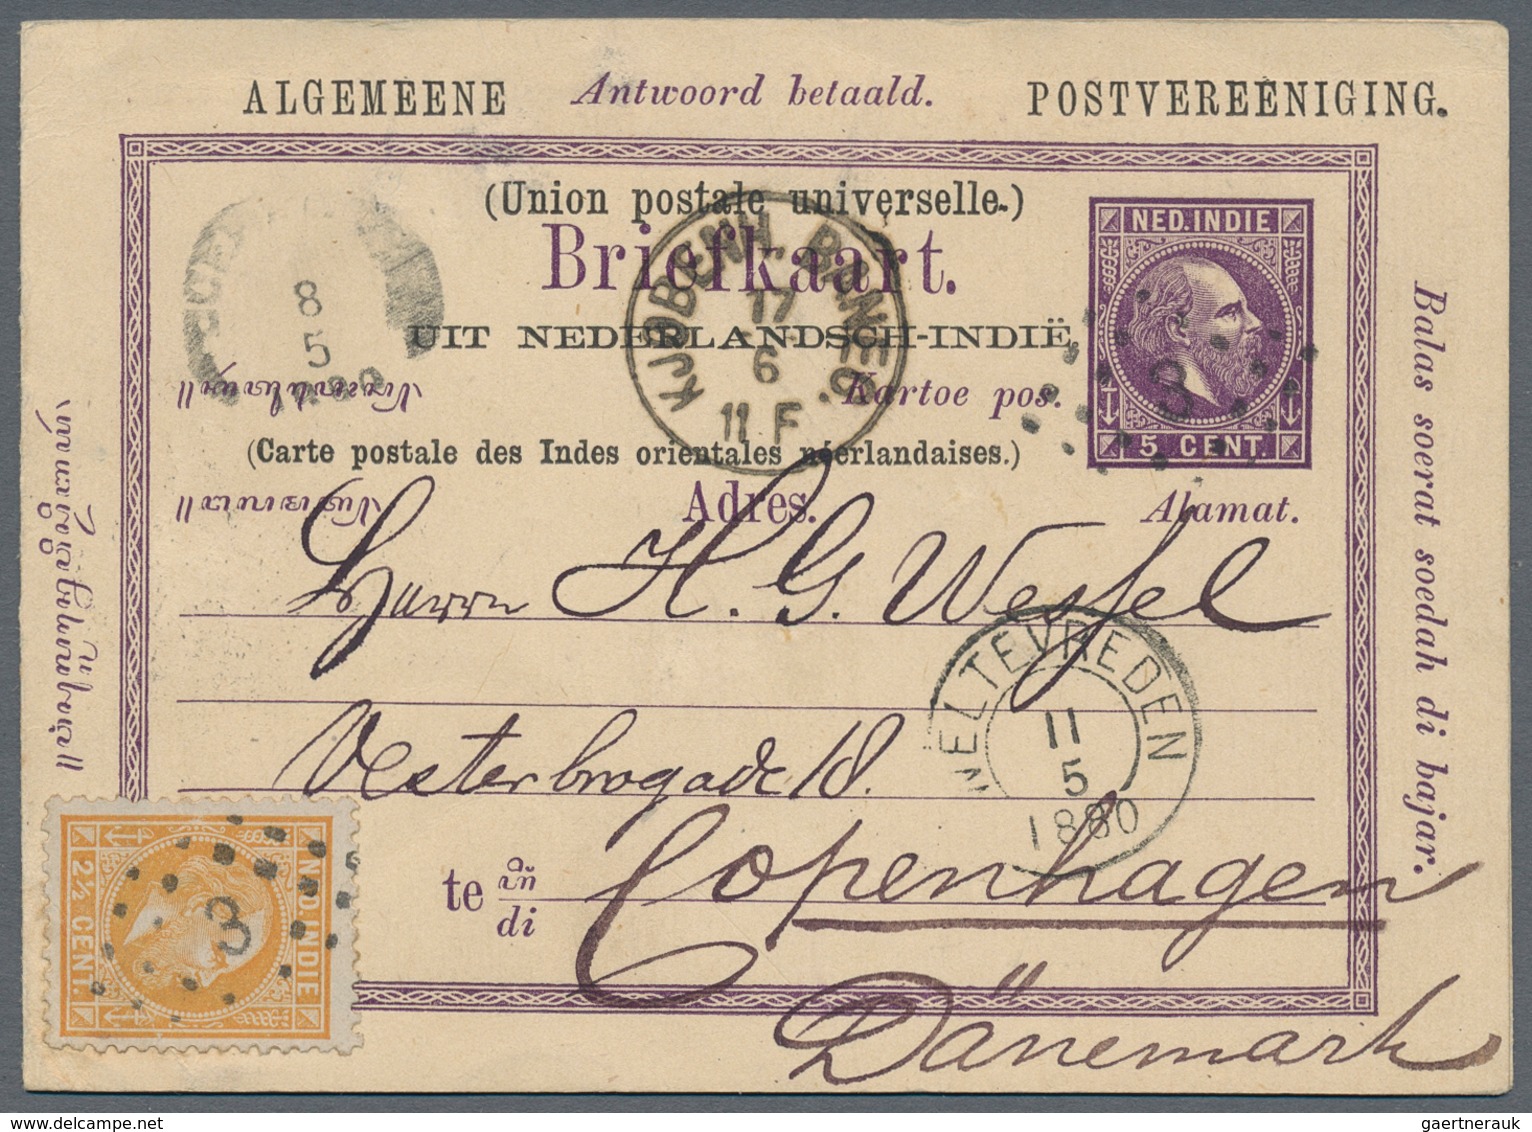 ALGEMEENE Antwoord betaald. POSTVEREENIGING.
(Union postale universelle.)
NED. INDIE
Briefkaart.
KJØBENH. BANEG.
17
6
11 F
8
5
UIT NEDERLANDSCH-INDIË,
Kartoe pos.
3
5 CENT.
(Carte postale des Indes orientales néerlandaises.)
Adres. Alamat.
Balas soerat soedah di bajar.
Herrn H. G. Wessel
WELTEVREDEN
11
5
1880
Vesterbrogade 18.
te di
Copenhagen
Dänemark
NED. INDIE
3
2½ CENT.
gaertnerauk